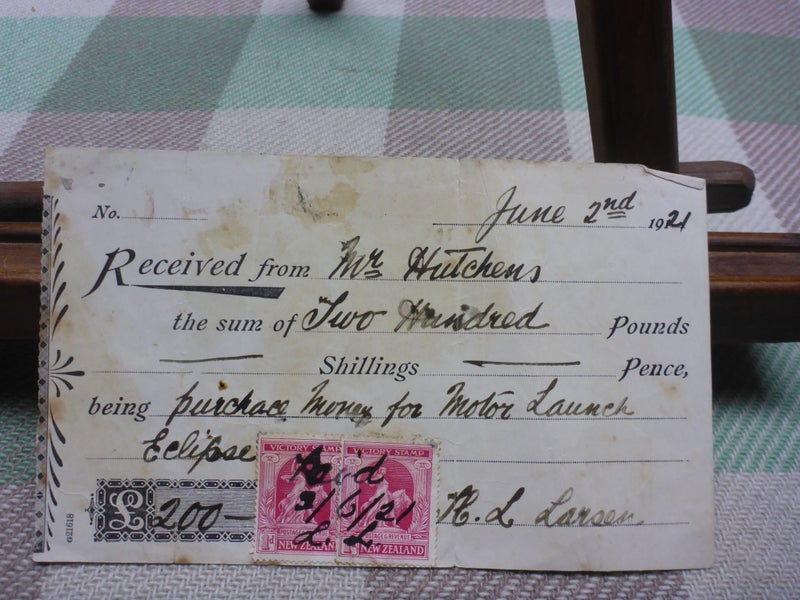 No. June 2nd 1921
Received from Mr Hutchens
the sum of Two Hundred Pounds
Shillings Pence,
being purchace Money for Motor Launch
Eclipse
£ 200— H. L Larsen
VICTORY STAMP VICTORY STAMP
Paid
3/6/21
L. L.
1d POSTAGE & REVENUE
NEW ZEALAND NEW ZEALAND
G21618